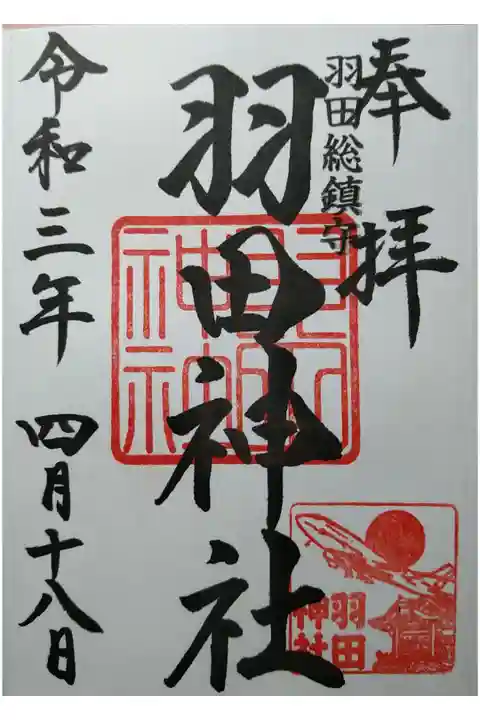 奉拝
羽田総鎮守
羽田神社
羽田
神社
令和三年 四月十八日